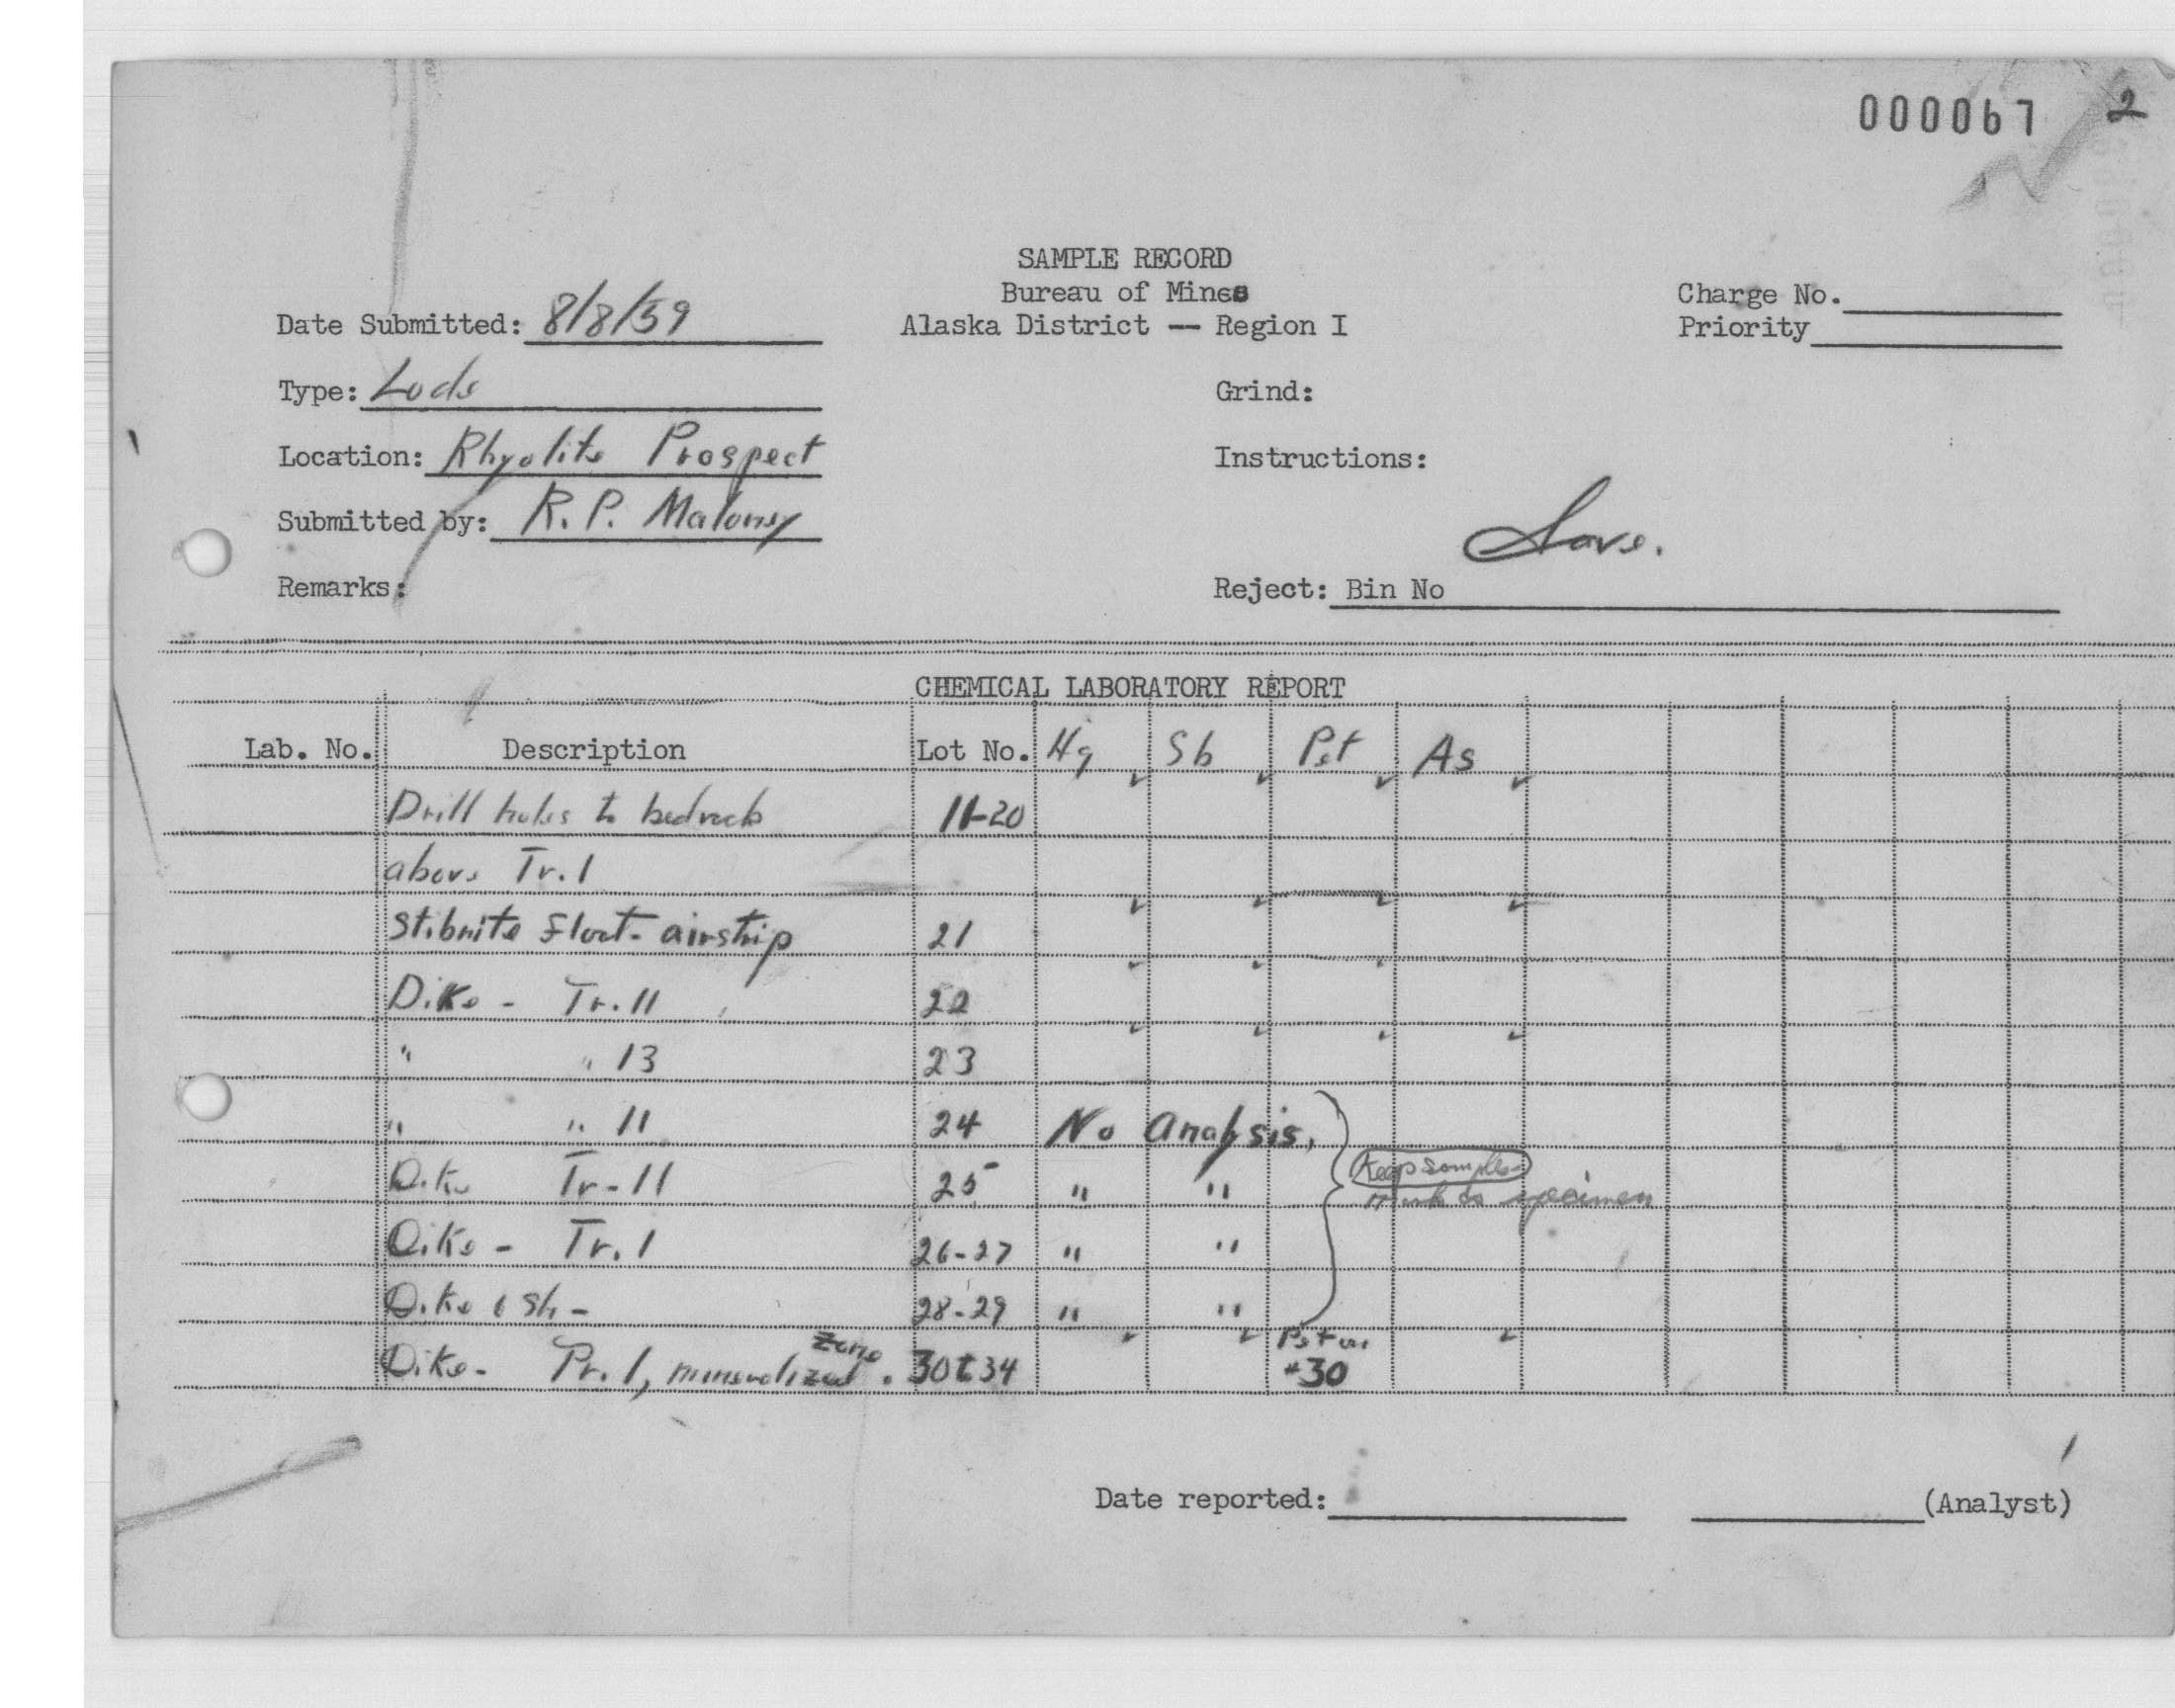 000067 2
SAMPLE RECORD
Bureau of Mines
Alaska District -- Region I
Charge No.
Priority
Date Submitted: 8/8/59
Type: Lode
Grind:
Location: Rhyolite Prospect
Instructions:
Submitted by: R. P. Maloney
Save.
Remarks:
Reject: Bin No
CHEMICAL LABORATORY REPORT
Lab. No. Description Lot No. Hg Sb Pet As
Drill holes to bedrock 11-20
above Tr. 1
Stibnite float - airstrip 21
Dike - Tr. 11 22
" " 13 23
" " 11 24 No Analysis,
Dike Tr-11 25 " "
Keep sample
as specimen
Dike - Tr. 1 26-27 " "
Dike & sh - 28-29 " "
Dike - Pr. 1, mineralized zone. 30 to 34 Pet on #30
Date reported: (Analyst)